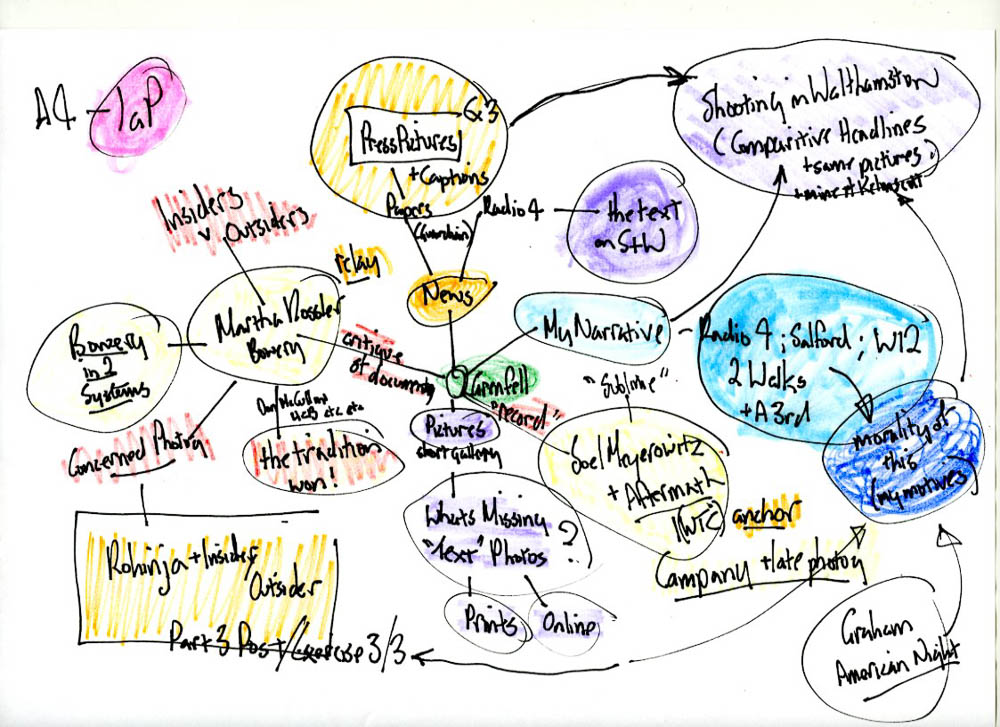 A4 - IaP
Q3
Press Pictures
+ Captions
Papers
(Guardian)
Radio 4
the text
on S+W
Shooting in Walthamstow
(Comparitive Headlines
+ same pictures)
+ mine at
Insiders
v Outsiders
relay
News
Martha Rossler
Bowery
Bowery
in 2
Systems
critique
of
My Narrative
Radio 4; Salford; W12
2 Walks
+ A 3rd
Grenfell
"record"
"Sublime"
Don McCullin
HCB etc etc
the tradition
won!
Concerned Photog
Pictures
short gallery
Joel Meyerowitz
+ Aftermath
(WTC)
anchor
morality of
this
(my motives)
Whats Missing
"text" Photos ?
Prints
Online
Campany + late photog
Rohinja + Insider/
Outsider
Part 3 Post/Exercise 3/3
Graham
American Night